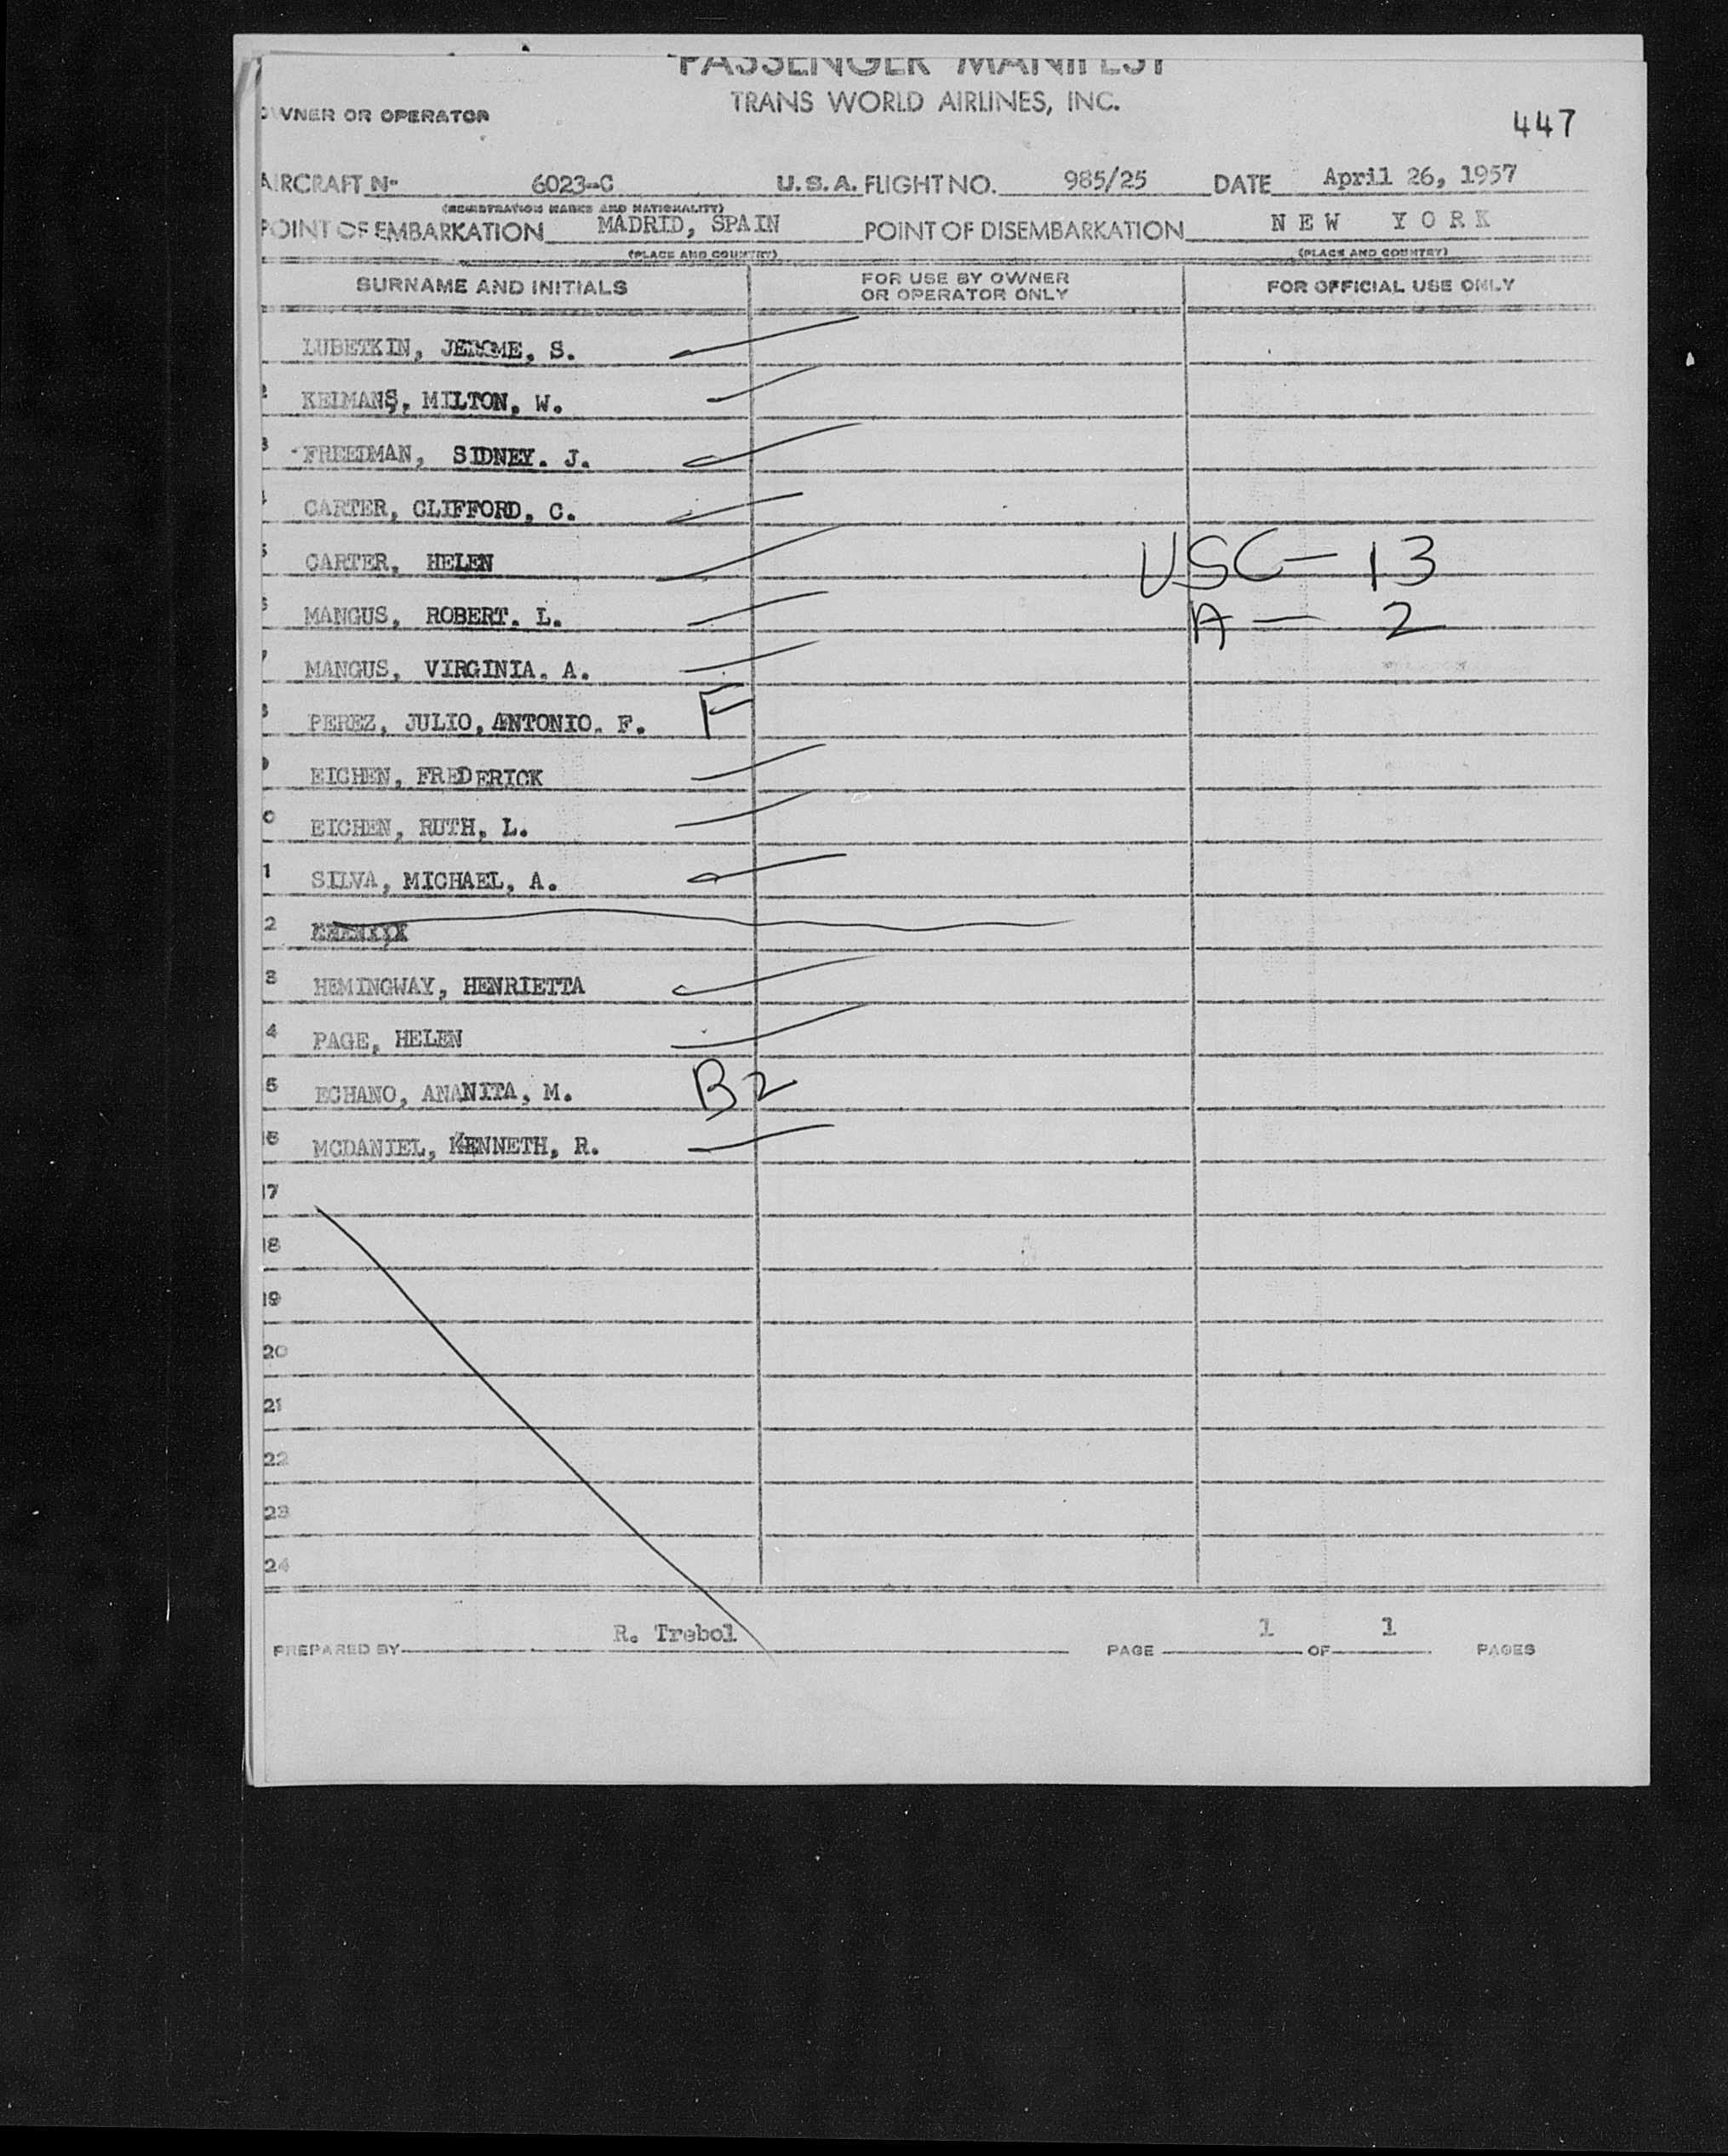 PASSENGER MANIFEST
TRANS WORLD AIRLINES, INC.
OWNER OR OPERATOR
447
AIRCRAFT Nº 6023-C U.S.A. FLIGHT NO. 985/25 DATE April 26, 1957
(REGISTRATION MARKS AND NATIONALITY)
POINT OF EMBARKATION MADRID, SPAIN POINT OF DISEMBARKATION NEW YORK
(PLACE AND COUNTRY) (PLACE AND COUNTRY)
SURNAME AND INITIALS FOR USE BY OWNER OR OPERATOR ONLY FOR OFFICIAL USE ONLY
LUBETKIN, JEROME, S.
2 KEIMANS, MILTON, W.
3 FREEDMAN, SIDNEY. J.
CARTER, CLIFFORD, C.
5 CARTER, HELEN USC - 13
6 MANGUS, ROBERT. L. A - 2
7 MANGUS, VIRGINIA. A.
8 PEREZ, JULIO, ANTONIO. F. F
9 EICHEN, FREDERICK
0 EICHEN, RUTH, L.
1 SILVA, MICHAEL, A.
2
3 HEMINGWAY, HENRIETTA
4 PAGE, HELEN
5 ECHANO, ANANITA, M. B2
16 MCDANIEL, KENNETH, R.
17
18
19
20
21
22
23
24
PREPARED BY R. Trebol PAGE 1 OF 1 PAGES